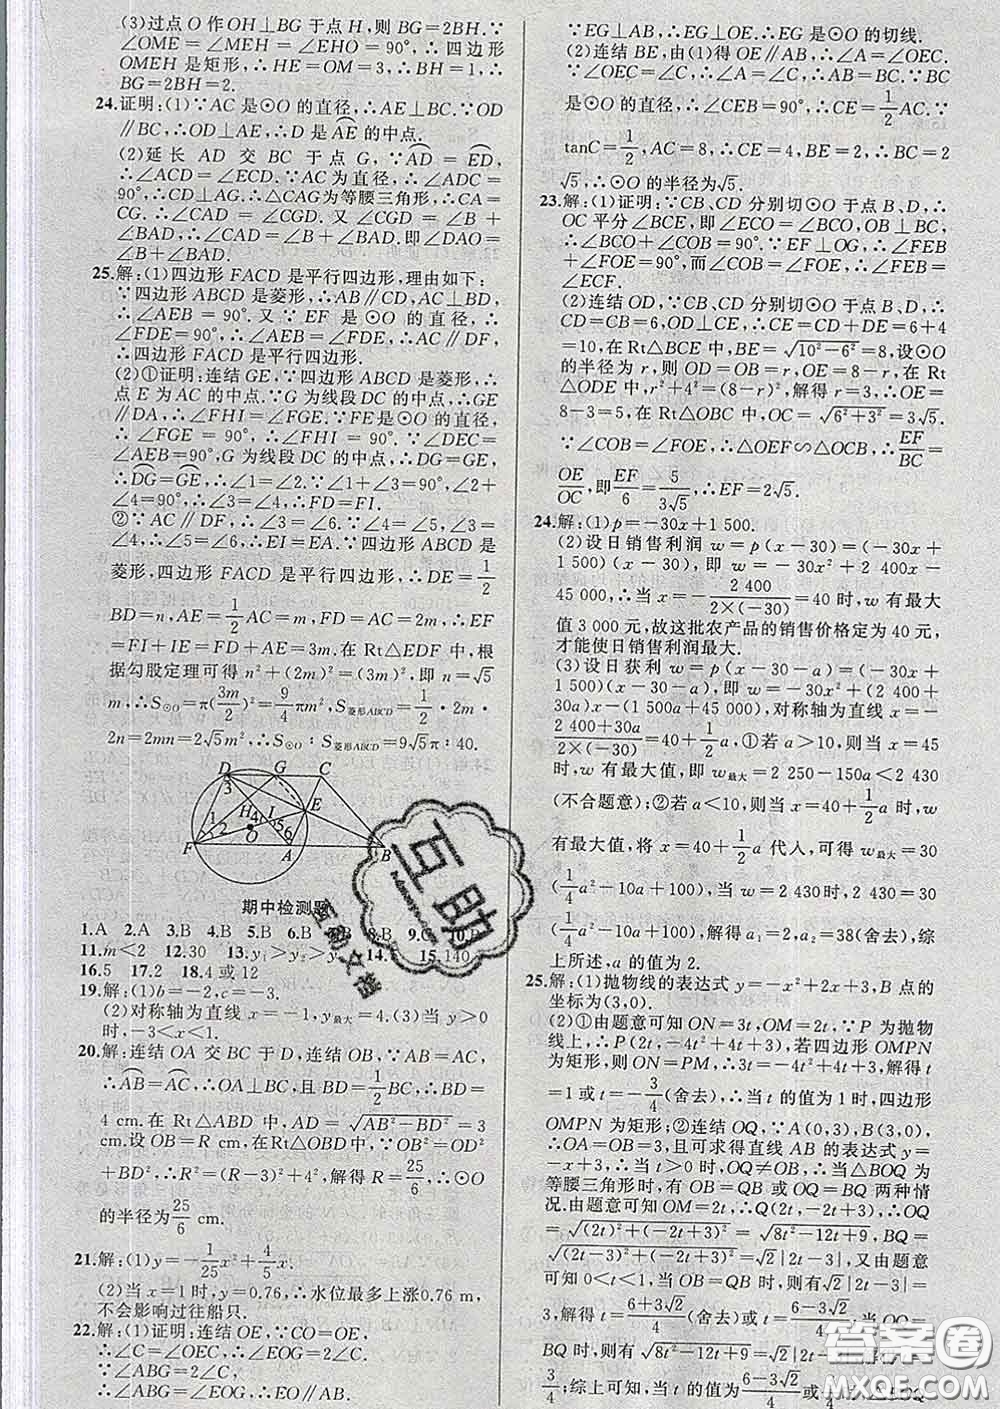 (3)过点O作OH⊥BG于点H,则BG=2BH.∵
∠OME=∠MEH=∠EHO=90°,∴四边形
OMEH是矩形,∴HE=OM=3,∴BH=1,∴
BG=2BH=2.
24.证明:(1)∵AC是⊙O的直径,∴AE⊥BC.∵OD
∥BC,∴OD⊥AE,∴D是AE的中点.
(2)延长AD交BC于点G,∵AD=ED,
∴∠ACD=∠ECD.∵AC为直径,∴∠ADC=
90°,∴CD⊥AG.∴△CAG为等腰三角形,∴CA=
CG.∴∠CAD=∠CGD.又∠CGD=∠B+
∠BAD,∴∠CAD=∠B+∠BAD.即∠DAO=
∠B+∠BAD.
25.解:(1)四边形FACD是平行四边形,理由如下:
∵四边形ABCD是菱形,∴AB∥CD,AC⊥BD,
∴∠AEB=90°.又∵EF是⊙O的直径,∴
∠FDE=90°,∴∠AEB=∠FDE,∴AC∥DF,
∴四边形FACD是平行四边形.
(2)①证明:连结GE,∵四边形ABCD是菱形,∴
点E为AC的中点.∵G为线段DC的中点,∴GE
∥DA,∴∠FHI=∠FGE.∵FE是⊙O的直径,
∴∠FGE=90°,∴∠FHI=90°.∵∠DEC=
∠AEB=90°,G为线段DC的中点,∴DG=GE,
∴DG=GE,∴∠1=∠2.∵∠1+∠3=90°,∠2
+∠4=90°,∴∠3=∠4,∴FD=FI.
②∵AC∥DF,∴∠3=∠6.∵∠4=∠5,∠3=
∠4,∴∠5=∠6,∴EI=EA.∵四边形ABCD是
菱形,四边形FACD是平行四边形,∴DE=1/2
BD=n,AE=1/2AC=m,FD=AC=2m,∴EF
=FI+IE=FD+AE=3m.在Rt△EDF中,根
据勾股定理可得n²+(2m)²=(3m)²,即n=√5
m,∴S⊙O=π(3m/2)²=9/4πm²,S菱形ABCD=1/2·2m·
2n=2mn=2√5m²,∴S⊙O:S菱形ABCD=9√5π:40.
D G C
3 H 4 I E
1 2 O 5 6
F A B
期中检测题
1.A 2.A 3.B 4.B 5.B 6.B 8.B
11.m<2 12.30 13.y₁>y₂>y 15.140
16.5 17.2 18.4或12
19.解:(1)b=-2,c=-3.
(2)对称轴为直线x=-1,y最大=4.(3)当y>0
时,-3<x<1.
20.解:连结OA交BC于D,连结OB,∵AB=AC,
∴AB=AC,∴OA⊥BC,且BD=1/2BC.∴BD=
4 cm.在Rt△ABD中,AD=√(AB²-BD²)=3
cm.设OB=R cm,在Rt△OBD中,∵OB²=OD²
+BD²,∴R²=(R-3)²+4²,解得R=25/6,∴⊙O
的半径为25/6 cm.
21.解:(1)y=-1/25x²+4/5x.
(2)当x=1时,y=0.76,∴水位最多上涨0.76 m,
不会影响过往船只.
22.解:(1)证明:连结OE,∵CO=OE,
∴∠C=∠OEC,∴∠EOG=2∠C.
∵∠ABG=2∠C,
∴∠ABG=∠EOG,∴OE∥AB.
∵EG⊥AB,∴EG⊥OE.∴EG是⊙O的切线.
(2)连结BE,由(1)得OE∥AB,∴∠A=∠OEC.
∵∠OEC=∠C,∴∠A=∠C,∴AB=BC.∵BC
是⊙O的直径,∴∠CEB=90°,∴CE=1/2AC.∵
tanC=1/2,AC=8,∴CE=4,BE=2,∴BC=2
√5,∴⊙O的半径为√5.
23.解:(1)证明:∵CB、CD分别切⊙O于点B、D,∴
OC平分∠BCE,即∠ECO=∠BCO,OB⊥BC,
∴∠BCO+∠COB=90°.∵EF⊥OG,∴∠FEB
+∠FOE=90°.而∠COB=∠FOE,∴∠FEB=
∠ECF.
(2)连结OD,∵CB、CD分别切⊙O于点B、D,∴
CD=CB=6,OD⊥CE,∴CE=CD+DE=6+4
=10,在Rt△BCE中,BE=√(10²-6²)=8,设⊙O
的半径为r,则OD=OB=r,OE=8-r,在Rt
△ODE中,r²+4²=(8-r)²,解得r=3,∴OE=
8-3=5,在Rt△OBC中,OC=√(6²+3²)=3√5.
∵∠COB=∠FOE,∴△OEF∽△OCB,∴EF/BC=
OE/OC,即EF/6=5/(3√5),∴EF=2√5.
24.解:(1)p=-30x+1 500.
(2)设日销售利润w=p(x-30)=(-30x+
1 500)(x-30),即w=-30x²+2 400x-
45 000,∴当x=-2 400/(2×(-30))=40时,w有最大
值3 000元,故这批农产品的销售价格定为40元,
才能使日销售利润最大.
(3)设日获利w=p(x-30-a)=(-30x+
1 500)(x-30-a),即w=-30x²+(2 400+
30a)x-(1 500a+45 000),对称轴为直线x=-
(2 400+30a)/(2×(-30))=40+1/2a,①若a>10,则当x=45
时,w有最大值,即w最大=2 250-150a<2 430
(不合题意);②若a<10,则当x=40+1/2a时,w
有最大值,将x=40+1/2a代入,可得w最大=30
(1/4a²-10a+100),当w=2 430时,2 430=30
(1/4a²-10a+100),解得a₁=2,a₂=38(舍去),综
上所述,a的值为2.
25.解:(1)抛物线的表达式y=-x²+2x+3,B点的
坐标为(3,0).
(2)①由题意可知ON=3t,OM=2t,∵P为抛物
线上,∴P(2t,-4t²+4t+3),若四边形OMPN
为矩形,则ON=PM,∴3t=-4t²+4t+3,解得t
=1或t=-3/4(舍去),∴当t的值为1时,四边形
OMPN为矩形;②连结OQ,∵A(0,3),B(3,0),
∴OA=OB=3,且可求得直线AB的表达式y=
-x+3,∴当t>0时,OQ≠OB,∴当△BOQ为
等腰三角形时,有OB=QB或OQ=BQ两种情
况.由题意可知OM=2t,∴Q(2t,-2t+3),∴OQ
=√((2t)²+(-2t+3)²)=√(8t²-12t+9),BQ=
√((2t-3)²+(-2t+3)²)=√2|2t-3|,又由题意
可知0<t<1,当OB=QB时,则有√2|2t-3|=
3,解得t=(6+3√2)/4(舍去)或t=(6-3√2)/4,当OQ=
BQ时,则有√(8t²-12t+9)=√2|2t-3|,解得t=
3/4;综上可知,当t的值为(6-3√2)/4或3/4时,△BOQ
互助
互助文档
答案圈